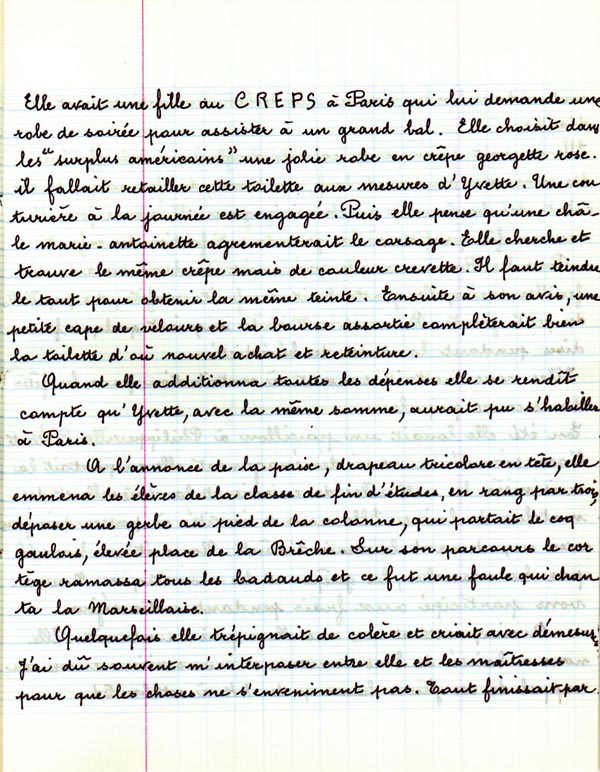 Elle avait une fille au CREPS à Paris qui lui demande une
robe de soirée pour assister à un grand bal. Elle choisit dans
les "surplus américains" une jolie robe en crêpe georgette rose.
il fallait retailler cette toilette aux mesures d'Yvette. Une cou
turière à la journée est engagée. Puis elle pense qu'une châ-
le marie-antoinette agrementerait le corsage. Elle cherche et
trouve le même crêpe mais de couleur crevette. Il faut teindre
le tout pour obtenir la même teinte. Ensuite à son avis, une
petite cape de velours et la bourse assortie complèterait bien
la toilette d'où nouvel achat et reteinture.
Quand elle additionna toutes les dépenses elle se rendit
compte qu'Yvette, avec la même somme, aurait pu s'habiller
à Paris.
A l'annonce de la paix, drapeau tricolore en tête, elle
emmena les élèves de la classe de fin d'études, en rang par trois,
déposer une gerbe au pied de la colonne, qui portait le coq
gaulois, élevée place de la Brêche. Sur son parcours le cor
tège ramassa tous les badauds et ce fut une foule qui chan
ta la Marseillaise.
Quelquefois elle trépignait de colère et criait avec démesure.
J'ai dû souvent m'interposer entre elle et les maîtresses
pour que les choses ne s'enveniment pas. Tout finissait par